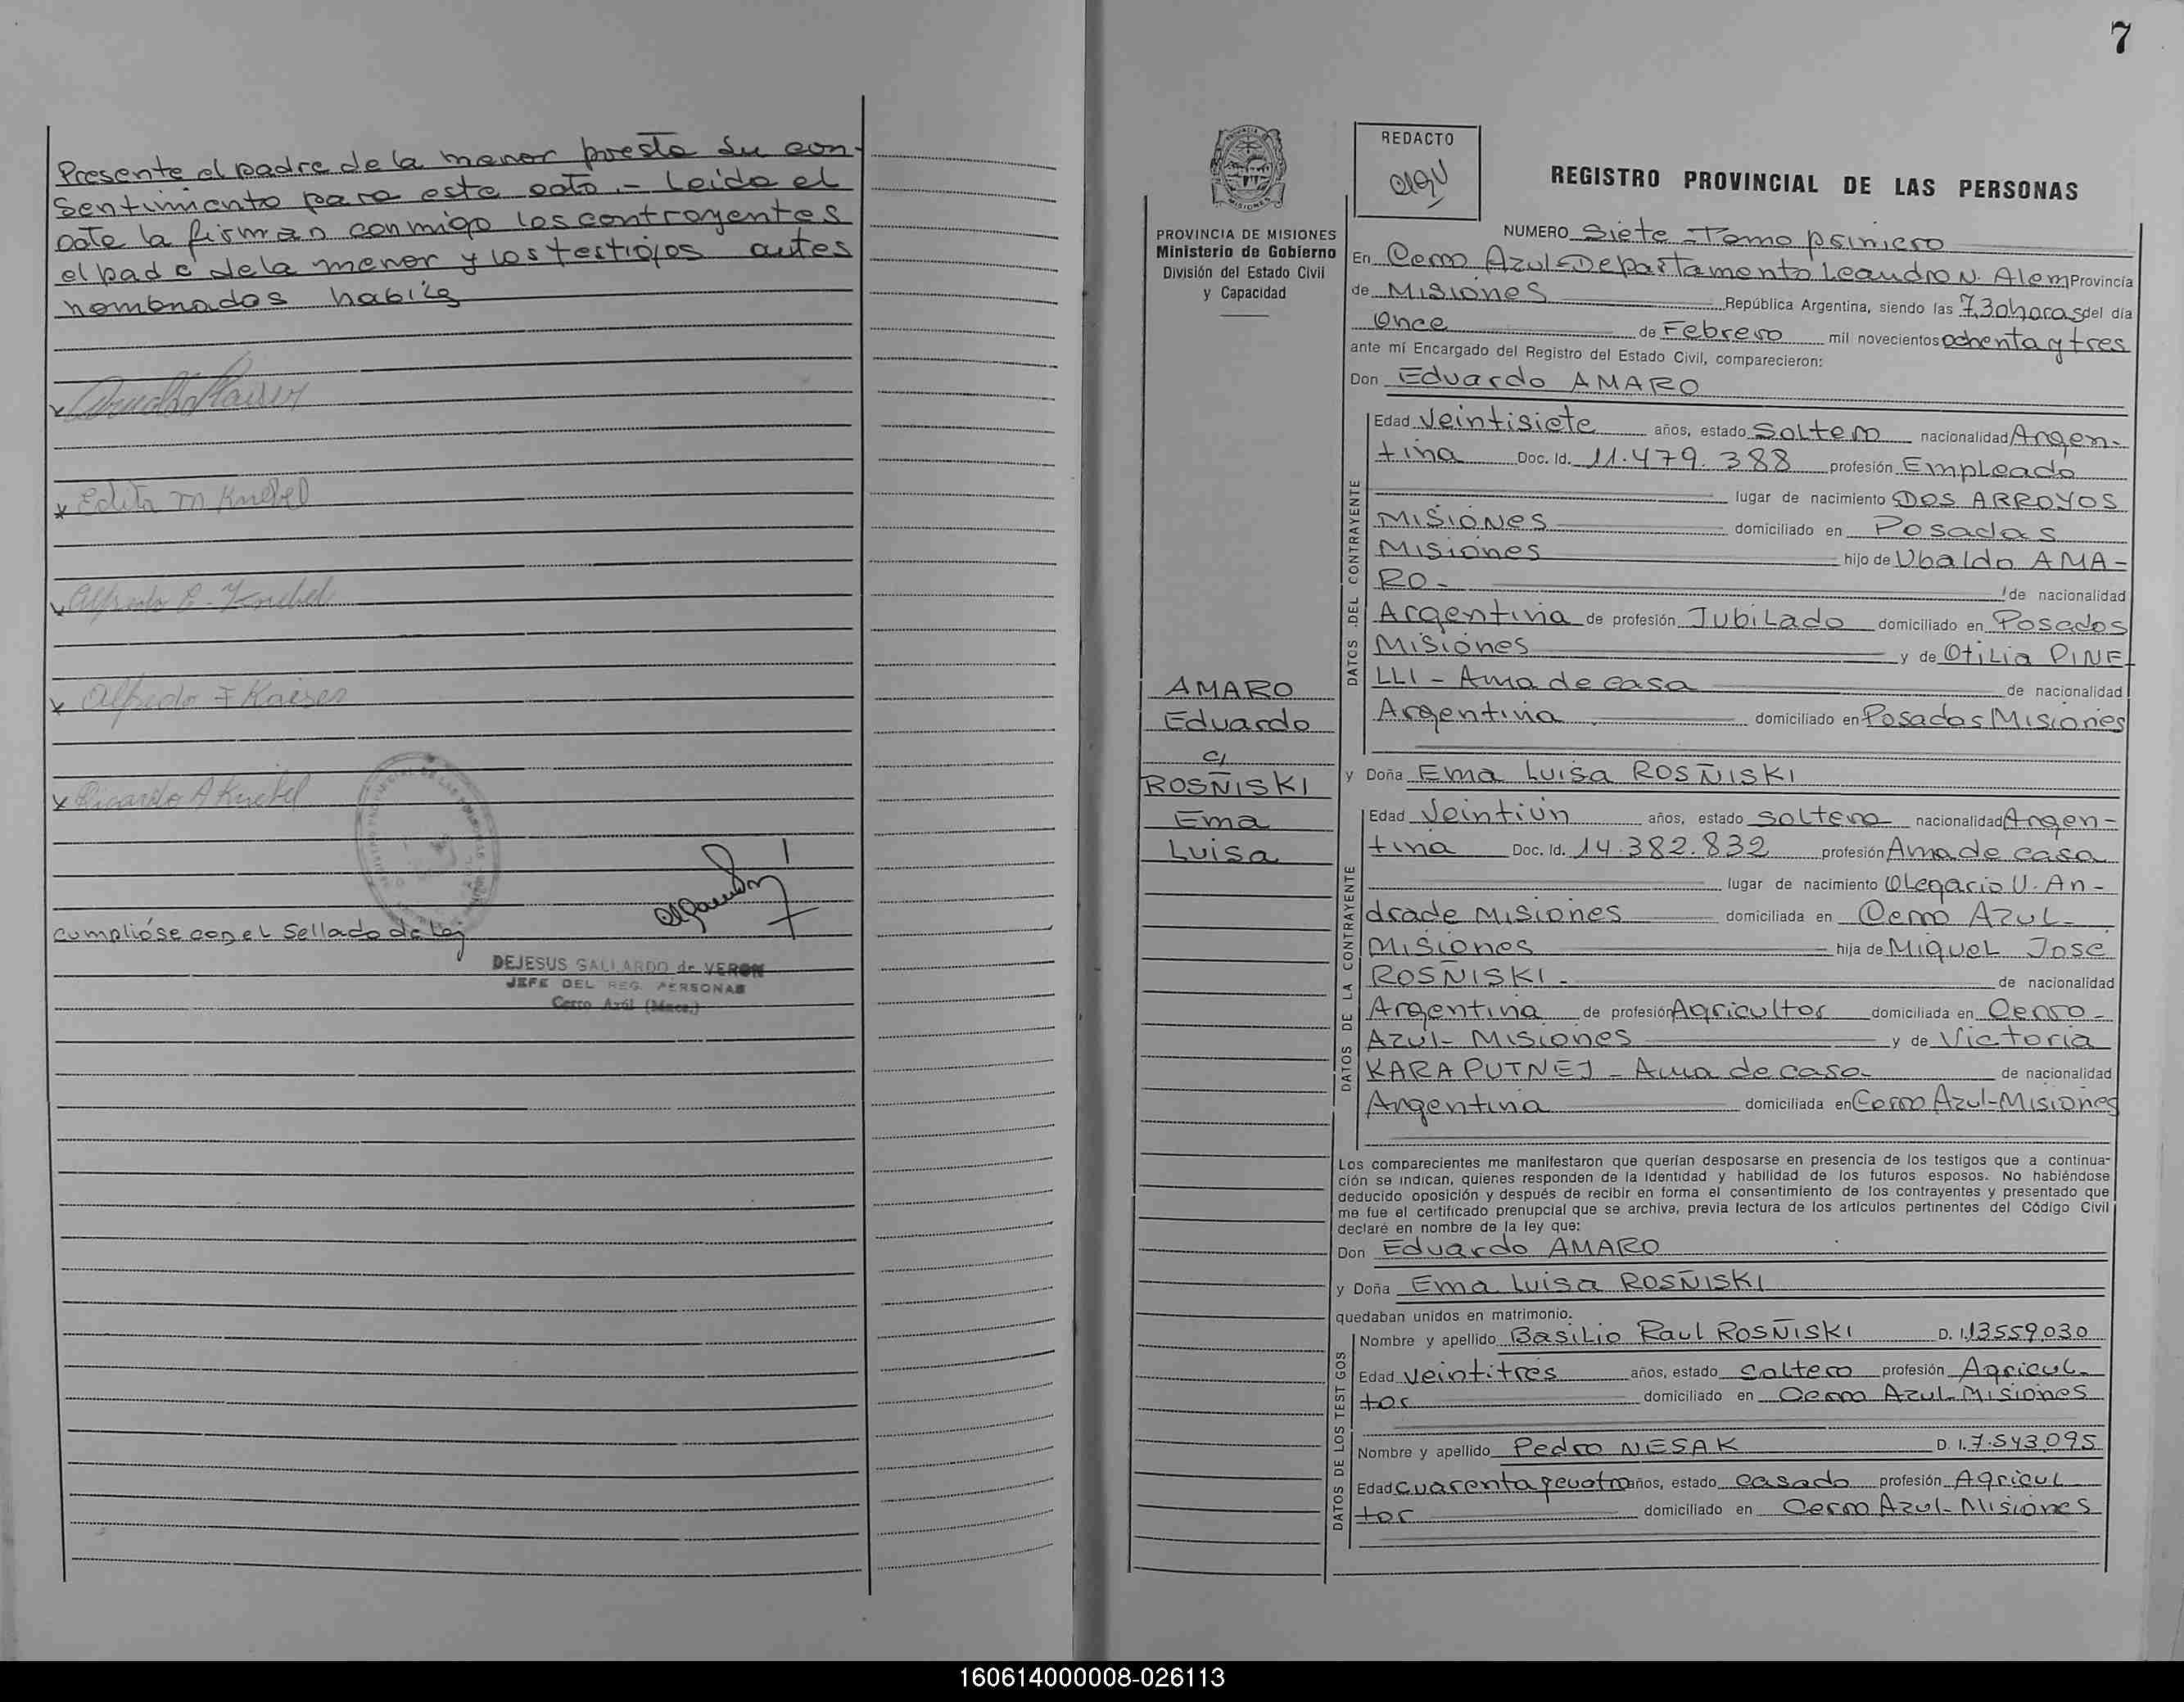 Presente el padre de la menor presta su con-
sentimiento para este acto.- Leida el
acta la firman conmigo los contrayentes
el padre de la menor y los testigos antes
nombrados habiles
Edita M Knebel
Alfredo E. Knebel
Alfredo F Kaiser
Ricardo A Knebel
cumplióse con el Sellado de Ley
DEJESUS GALLARDO de VERON
JEFE DEL REG. PERSONAS
Cerro Azúl (Mnes.)
7
PROVINCIA DE MISIONES
Ministerio de Gobierno
División del Estado Civil
y Capacidad
AMARO
Eduardo
c/
ROSÑISKI
Ema
Luisa
REDACTO
REGISTRO PROVINCIAL DE LAS PERSONAS
NUMERO Siete - Tomo primero
En Cerro Azul - Departamento Leandro N. Alem Provincia
de Misiones República Argentina, siendo las 7,30 horas del día
Once de Febrero mil novecientos ochenta y tres
ante mí Encargado del Registro del Estado Civil, comparecieron:
Don Eduardo AMARO
DATOS DEL CONTRAYENTE
Edad Veintisiete años, estado Soltero nacionalidad Argen-
tina Doc. Id. 11.479.388 profesión Empleado
lugar de nacimiento DOS ARROYOS
Misiones domiciliado en Posadas
Misiones hijo de Ubaldo AMA-
RO - de nacionalidad
Argentina de profesión Jubilado domiciliado en Posadas
Misiones y de Otilia PINE-
LLI - Ama de casa de nacionalidad
Argentina domiciliado en Posadas Misiones
y Doña Ema Luisa ROSÑISKI
DATOS DE LA CONTRAYENTE
Edad Veintiún años, estado soltera nacionalidad Argen-
tina Doc. Id. 14.382.832 profesión Ama de casa
lugar de nacimiento Olegario V. An-
drade Misiones domiciliada en Cerro Azul-
Misiones hija de Miguel Jose
ROSÑISKI - de nacionalidad
Argentina de profesión Agricultor domiciliada en Cerro-
Azul- Misiones y de Victoria
KARAPUTNEJ - Ama de casa- de nacionalidad
Argentina domiciliada en Cerro Azul-Misiones
Los comparecientes me manifestaron que querían desposarse en presencia de los testigos que a continua-
ción se indican, quienes responden de la identidad y habilidad de los futuros esposos. No habiéndose
deducido oposición y después de recibir en forma el consentimiento de los contrayentes y presentado que
me fue el certificado prenupcial que se archiva, previa lectura de los artículos pertinentes del Código Civil
declaré en nombre de la ley que:
Don Eduardo AMARO
y Doña Ema Luisa ROSÑISKI
quedaban unidos en matrimonio.
DATOS DE LOS TESTIGOS
Nombre y apellido Basilio Raul ROSÑISKI D. I. 13559.030
Edad veintitres años, estado soltero profesión Agricul-
tor domiciliado en Cerro Azul-Misiones
Nombre y apellido Pedro NESAK D. I. 7.543.095
Edad cuarenta y cuatro años, estado casado profesión Agricul
tor domiciliado en Cerro Azul- Misiones
160614000008-026113